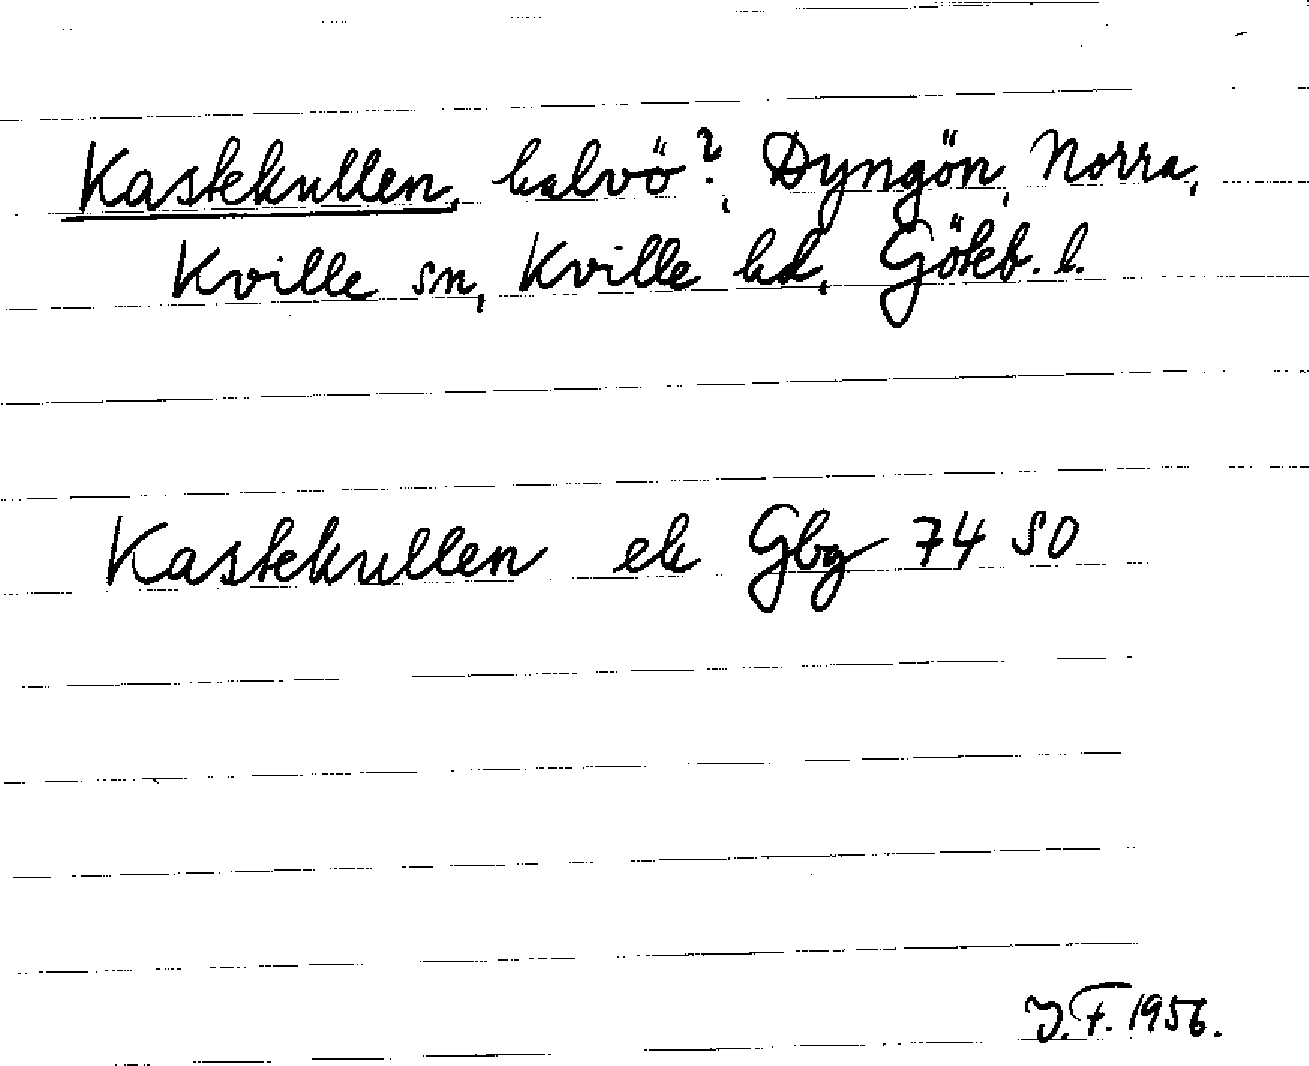 Kastekullen, halvö?, Dyngön, Norra,
Kville sn, Kville hd, Göteb. l.
Kastekullen ek Gbg 74 SO
J.F. 1956.